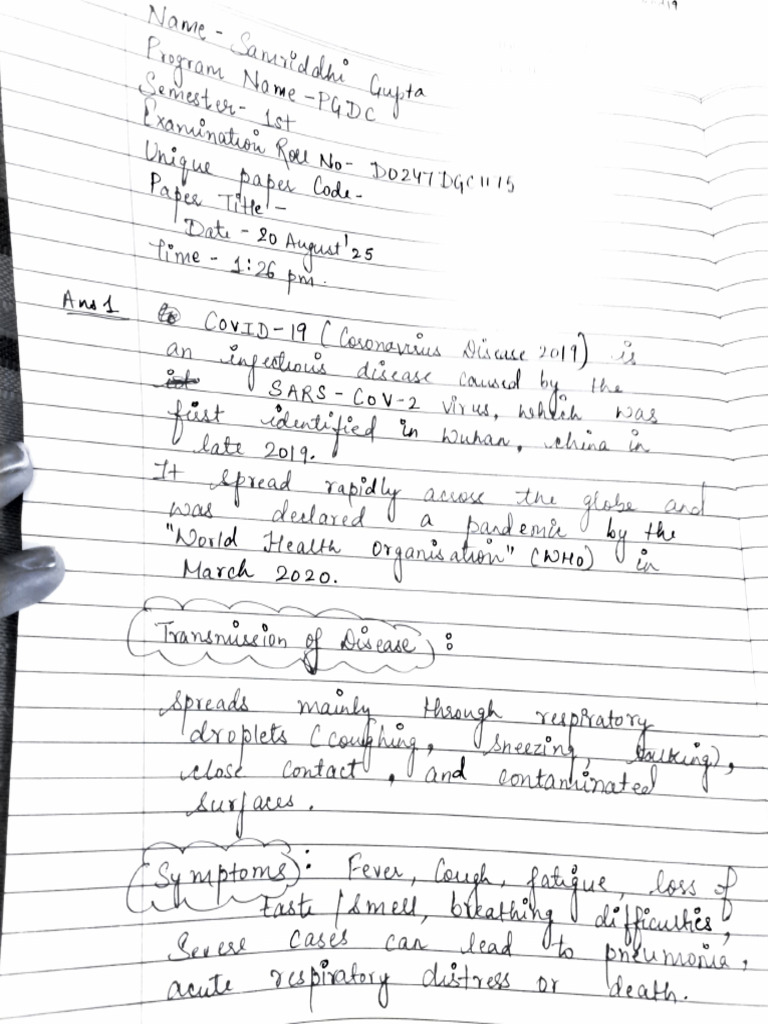 Name - Samriddhi Gupta
Program Name - PGDC
Semester - 1st
Examination Roll No - D0247DGC1115
Unique paper Code -
Paper Title -
Date - 20 August'25
Time - 1:26 pm.
Ans 1 COVID-19 (Coronavirus Disease 2019) is
an infectious disease caused by the
SARS-CoV-2 virus, which was
first identified in Wuhan, china in
late 2019.
It spread rapidly across the globe and
was declared a pandemic by the
"World Health Organisation" (WHO) in
March 2020.
Transmission of Disease :
Spreads mainly through respiratory
droplets (coughing, sneezing, talking),
close contact, and contaminated
surfaces.
Symptoms : Fever, Cough, fatigue, loss of
taste / smell, breathing difficulties,
Severe cases can lead to pneumonia,
acute respiratory distress or death.